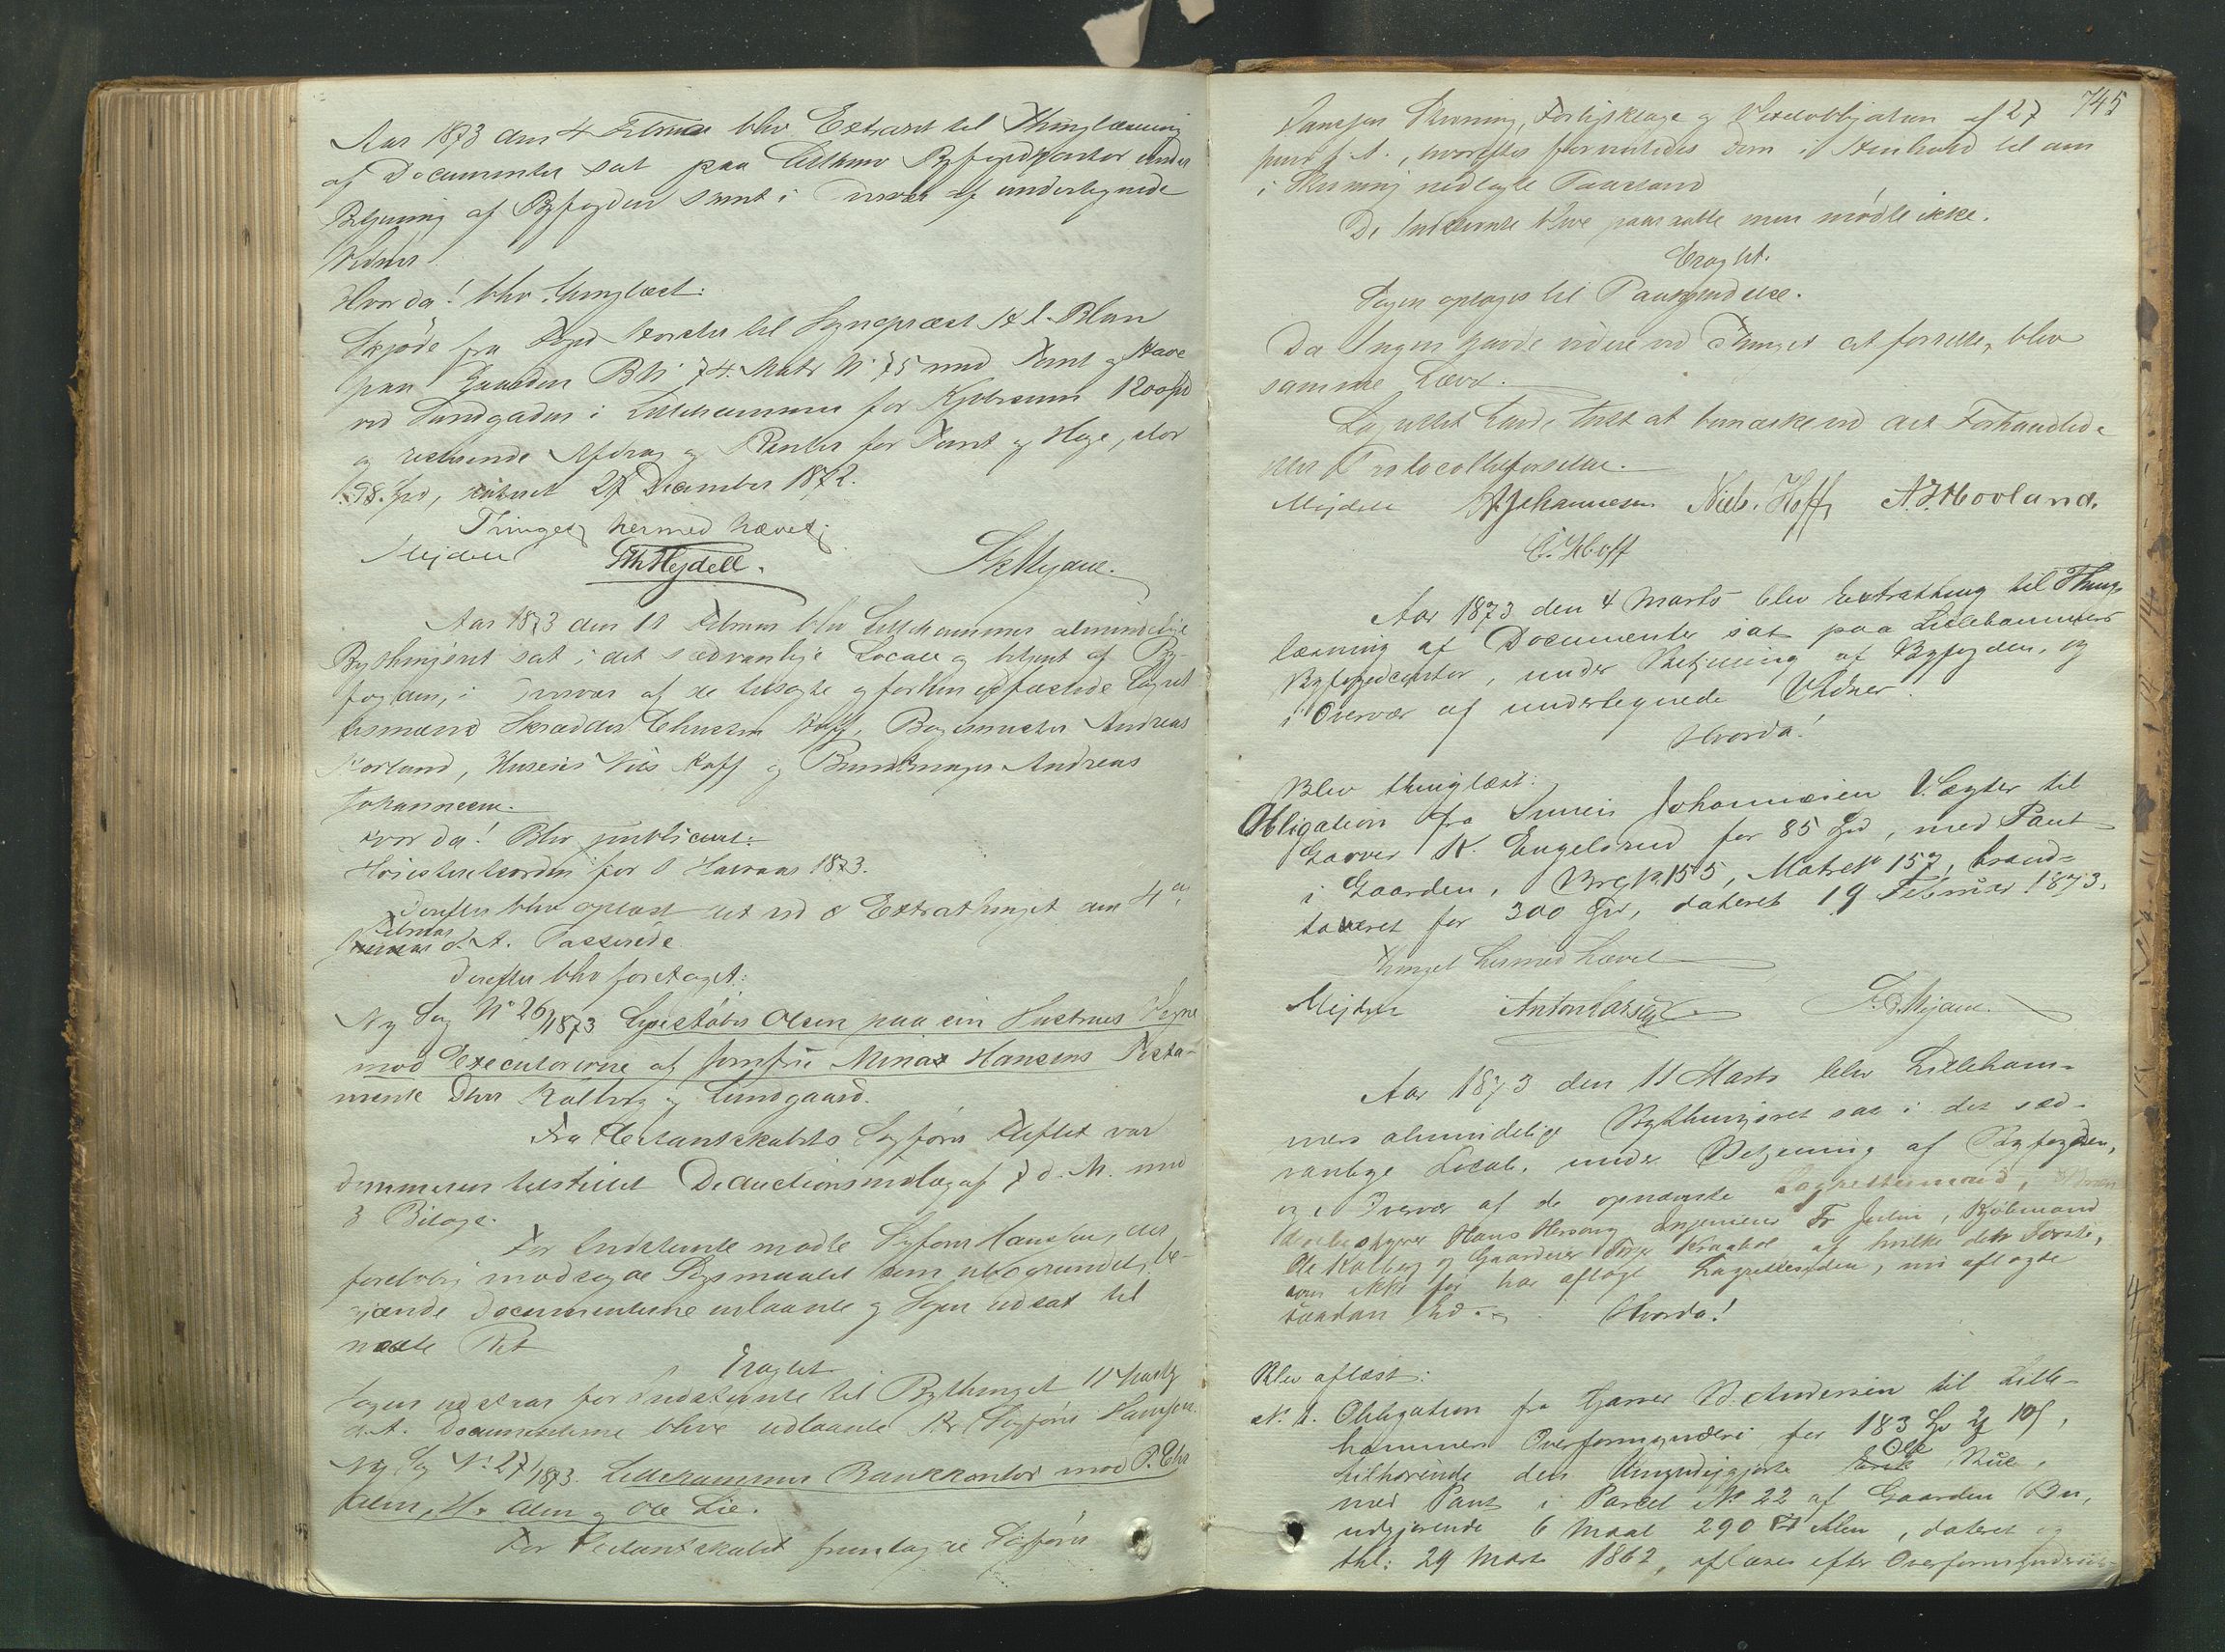 Aar 1873 den 4 Februar blev Extraret til Thinglæsning
af Documenter sat paa Lillehmr Byfogedcontor under
Betjening af Byfogden samt i Overvær af undertegnede
Vidner
Hvor da! blev thinglæst:
Skjøde fra Foged til Sogneprest Blom
paa Gaarden B N 74. Matr N 75 med Tomt og Have
ved Sandgaden i Lillehammer for Kjøbesum 1200 spd
og resterende Afdrag og Renter for Tomt og Hage, stor
98. spd, dateret 27 December 1872.
Thinget hermed hævet
Mejdell ThMejdell.
Aar 1873 den 11 Februar blev Lillehammer almindelige
Bythingsret sat i det sædvanlige Locale og betjent af By-
fogden, i Overvær af de tilsagte og forhen edfæstede Lagret
tesmænd Skrædder Christen Hoff, Bagermester Andreas
Hovland, Huseier Niels Hoff og Bundtmager Andreas
Johannesen.
Hvor da! Blev publiceret:
Høiesteretsorden for 1 Halvaar 1873.
Derefter blev oplæst det ved Extrathinget den 4de
Februar
d. A. Passerede
Derefter blev foretaget:
Ny Sag No 26/1873 Gjæstøber Olsen paa sin Hustrues Vegne
mod Executorerne af Jomfru Mina Hansens Testa-
mente D'hrr Kolberg og Lundgaard.
Fra Citantskabets Sagfører Kleflet var
Dommeren tilstillet Deductionsindlæg af 7 d. M. med
3 Bilage.
For Indstevnte mødte Sagfører Hansson, der
foreløbig modsagde Søgsmaalet som ubegrundet, be-
gjærede Documenterne udlaante og Sagen udsat til
næste Ret
Eragtet
Sagen udstaar for Indstevnte til Bythinget 11 Marts
d. A. Documenterne blive udlaante Hr Sagfører Hansson.
Ny Sag No 27/1873. Lillehammer Bankkontor mod P. Chr
Alm, H. Alm og Ole Lie.
For Citantskabet fremlagde Sagfører
745
Hansson Stevning, Forligsklage og Vexelobligation af 27
f. A., hvorefter formentedes Dom i Henhold til den
i Stevning nedlagte Paastand
De Indstevnte bleve paaraabte men mødte ikke.
Eragtet.
Sagen optages til Paakjendelse.
Da Ingen havde videre ved Thinget at forrette, blev
samme hævet.
Lagrettet havde Intet at bemærke ved det Forhandlede
eller Protocoltilførselen.
Mejdell AJohannesen Niels. Hoff A. J. Hovland.
C. Hoff
Aar 1873 den 4 Marts blev Extrathing til Thing-
læsning af Documenter sat paa Lillehammers
Byfogedcontor, under Betjening af Byfogden, og
i Overvær af undertegnede Vidner.
Hvorda!
Blev thinglæst:
Obligation fra Simen Johannesen Vægter til
Garver K. Engelsrud for 85 Spd, med Pant
i Gaarden, Br.N. 155, Matr No 157, brand-
taxeret for 300 Spd, dateret 19 Februar 1873.
Thinget hermed hævet
Mejdell Anton Larsen
Aar 1873 den 11 Marts blev Lilleham-
mers almindelige Bythingsret sat i det sæd-
vanlige Locale, under Betjening af Byfogden,
og i Overvær af de opnævnte Lagrettemænd,
Hans Hersoug, Ingeniør Fr Julin, Kjøbmand
Ole Kolberg og Gaardeier Kraabol af hvilke den Første,
som ikke før har aflagt Lagretteseden, nu aflagde
saadan Ed. Hvorda!
Blev aflæst:
No 1. Obligation fra Garver N. Andersen til Lille-
hammers Overformynderi for 183 Spd 2 10 s,
tilhørende den Umyndiggjorte Ole Rue,
med Pant i Parcel No 22 af Gaarden Bu,
udgjørende 6 Maal 290 □ Alen, dateret og
thl: 29 Marts 1862, aflæses efter Overformynderiets